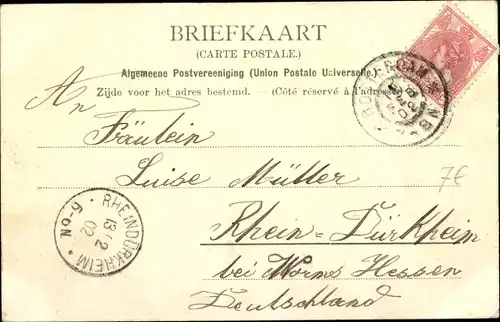 BRIEFKAART
(CARTE POSTALE.)
Algemeene Postvereeniging (Union Postale Universelle.)
Zijde voor het adres bestemd. — (Côté réservé à l'adresse.)
An
Fräulein
Luise Müller
7€
Rhein-Dürkheim
bei Worms Hessen
Deutschland
RHEINDÜRKHEIM
13 2
02
6-9N
ROTTERDAM